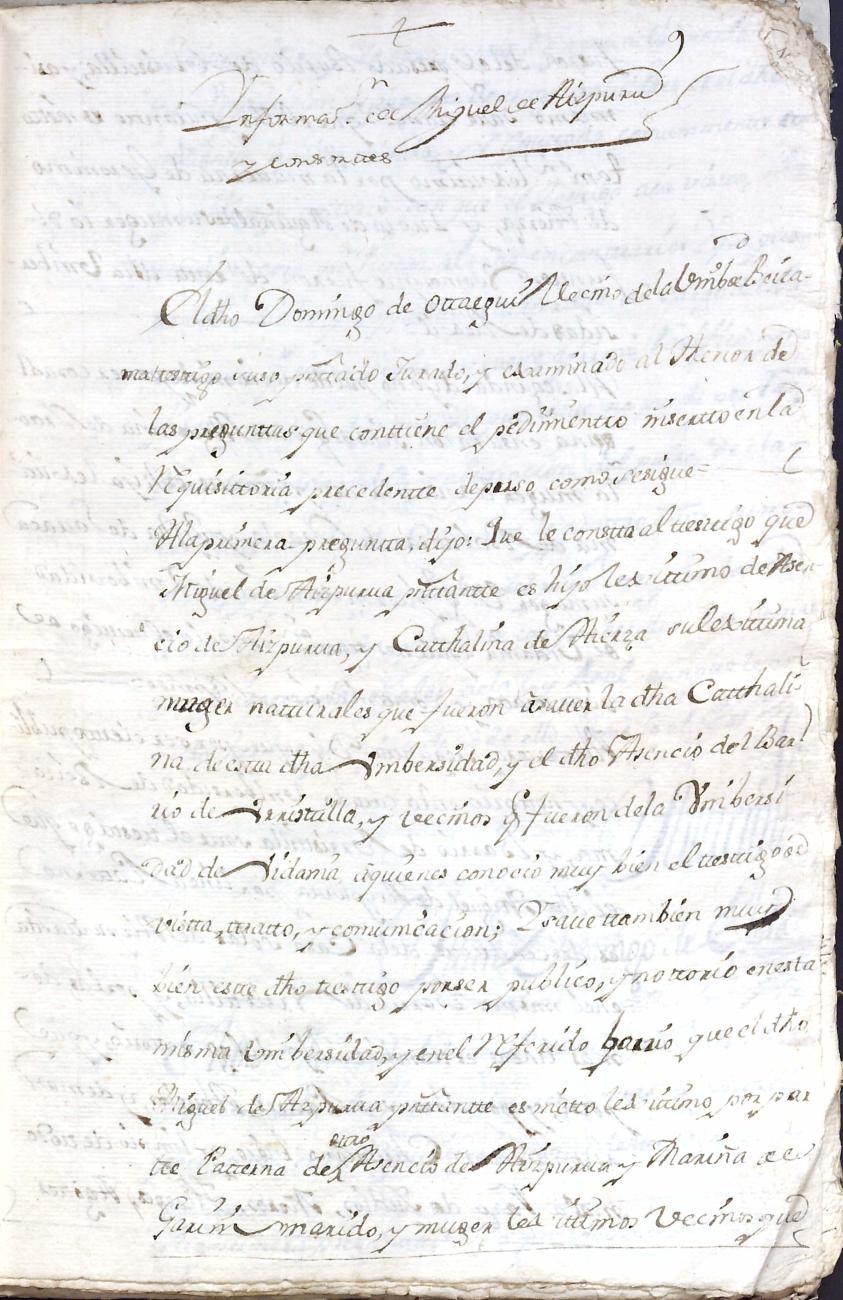 +
Informaon. de Miguel de Aizpurua
y consortes
El dho Domingo de Ottaegui Vecino de la Unibd de Beiza-
ma testigo juso pnttado Jurado, y examinado al thenor de
las preguntas que conttiene el pedimientto insertto en la
Requisittoria precedentte depuso como se sigue=
A la primera pregunta, dijo: Que le constta al testtigo que
Miguel de Aizpurua pnttantte es hijo lexittimo de Asen-
cio de Aizpurua, y Catthalina de su lexittima
muger natturales que fueron à saver la dha Catthali-
na de esta dha Unibersidad, y el dho Asencio del Bar-
rio de Urrestilla, y vecinos q fueron de la Unibersi
dad de Vidania àquienes conocio muy bien el testtigo de
vistta, tratto, y comunicacion; Y save ttambien muy
bien estte dho testtigo por ser publico, y nottorio en esta
misma Unibersidad, y en el Referido barrio que el dho
Miguel de Aizpurua pnttantte es nietto lexittimo por par
tte Patterna de ottro Asencio de Aizpurua y Mariña de
Garin marido, y muger lexittimos Vecinos que